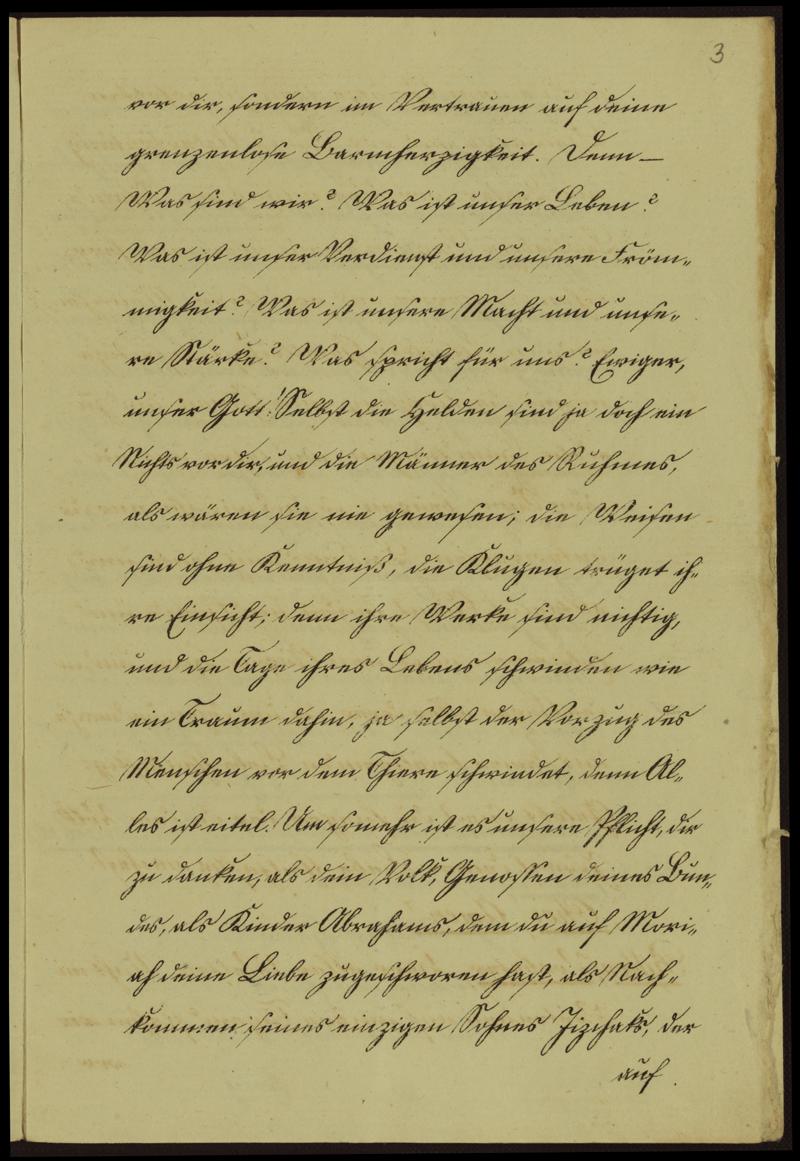 3
vor dir, sondern im Vertrauen auf deine
grenzenlose Barmherzigkeit. Denn —
Was sind wir? Was ist unser Leben?
Was ist unser Verdienst und unsere Fröm„
migkeit? Was ist unsere Macht und unse„
re Stärke? Was spricht für uns? Ewiger,
unser Gott! Selbst die Helden sind ja doch ein
Nichts vor dir, und die Männer des Ruhmes,
als wären sie nie gewesen; die Weisen
sind ohne Kenntniß, die Klugen trüget ih„
re Einsicht; denn ihre Werke sind nichtig,
und die Tage ihres Lebens schwinden wie
ein Traum dahin, ja selbst der Vorzug des
Menschen vor dem Thiere schwindet, denn Al„
les ist eitel. Um somehr ist es unsere Pflicht, dir
zu danken, als dein Volk, Genossen deines Bun„
des, als Kinder Abrahams, dem du auf Mori„
ah deine Liebe zugeschworen hast, als Nach„
kommen seines einzigen Sohnes Jizchak, der
auf